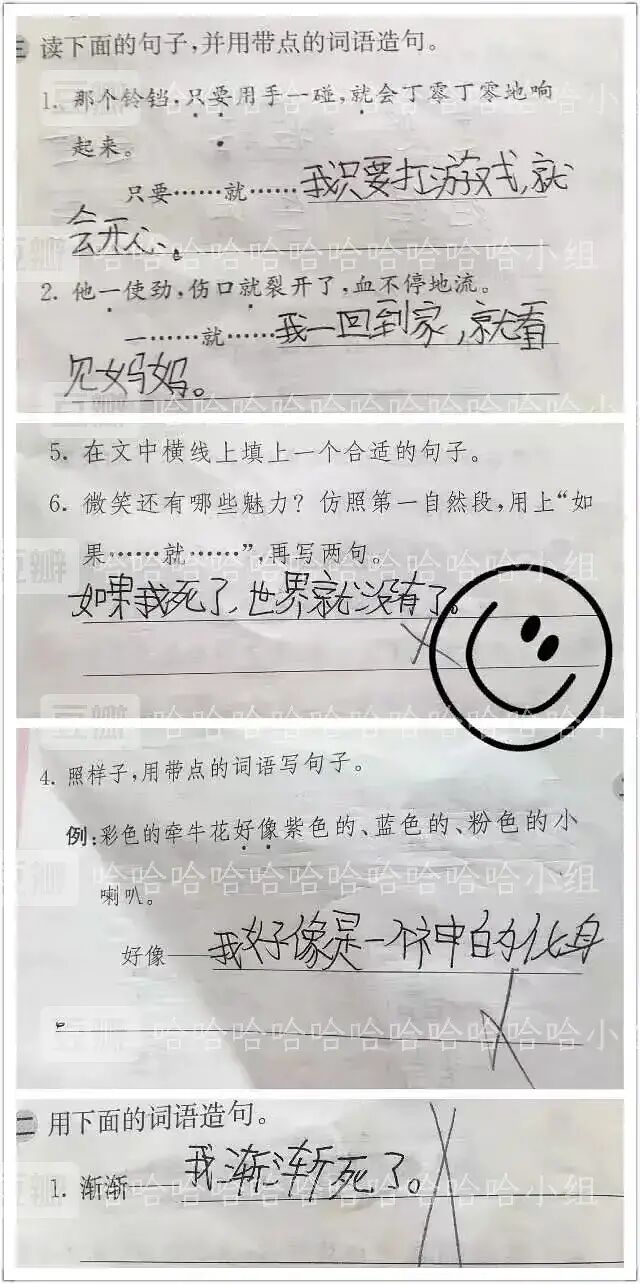 三 读下面的句子,并用带点的词语造句。
1. 那个铃铛,只要用手一碰,就会丁零丁零地响
起来。
只要……就……我只要打游戏,就
会开心。
2. 他一使劲,伤口就裂开了,血不停地流。
一……就……我一回到家,就看
见妈妈。
5. 在文中横线上填上一个合适的句子。
6. 微笑还有哪些魅力?仿照第一自然段,用上“如
果……就……”,再写两句。
如果我死了,世界就没有了。
4. 照样子,用带点的词语写句子。
例:彩色的牵牛花好像紫色的、蓝色的、粉色的小
喇叭。
好像——我好像是一个神的化身
。
二 用下面的词语造句。
1. 渐渐 我渐渐死了。
豆瓣 哈哈哈哈哈哈哈哈哈哈小组